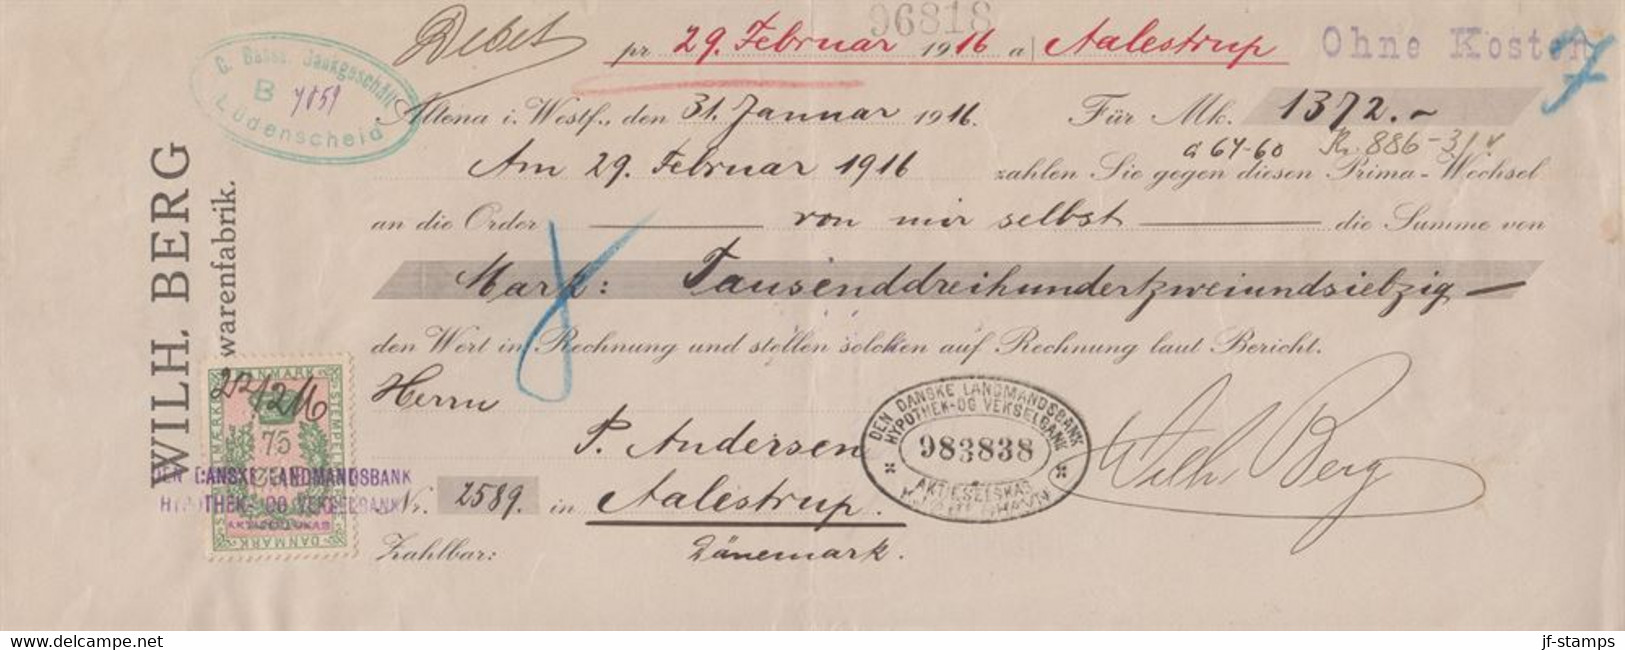 96818
Debet pr 29. Februar 1916 a/ Aalestrup Ohne Kosten
G. Basse, Bankgeschäft
B 7859
Lüdenscheid
Altena i. Westf., den 31. Januar 1916. Für Mk. 1372.-
a 64-60 Kr. 886-31
Am 29. Februar 1916 zahlen Sie gegen diesen Prima-Wechsel
an die Order von mir selbst die Summe von
Mark: Tausenddreihundertzweiundsiebzig
den Wert in Rechnung und stellen solchen auf Rechnung laut Bericht.
Herrn
P. Andersen
Nr. 2589. in Aalestrup.
Zahlbar: Dänemark.
WILH. BERG
warenfabrik.
DANMARK
STEMPELMÆRKE
22/2 16
75
DANMARK
DEN DANSKE LANDMANDSBANK
HYPOTHEK- OG VEKSELBANK
AKTIESELSKAB
DEN DANSKE LANDMANDSBANK
HYPOTHEK- OG VEKSELBANK
983838
AKTIESELSKAB
Wilh. Berg
www.delcampe.net
jf-stamps